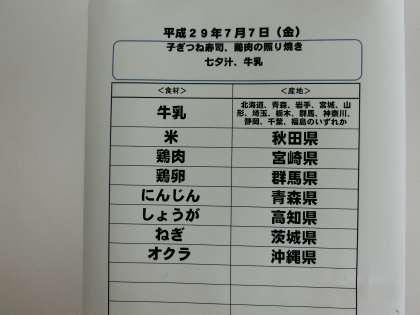 平成29年7月7日（金）
子ぎつね寿司、鶏肉の照り焼き
七夕汁、牛乳
＜食材＞ ＜産地＞
牛乳 北海道、青森、岩手、宮城、山
形、埼玉、栃木、群馬、神奈川、
静岡、千葉、福島のいずれか
米 秋田県
鶏肉 宮崎県
鶏卵 群馬県
にんじん 青森県
しょうが 高知県
ねぎ 茨城県
オクラ 沖縄県